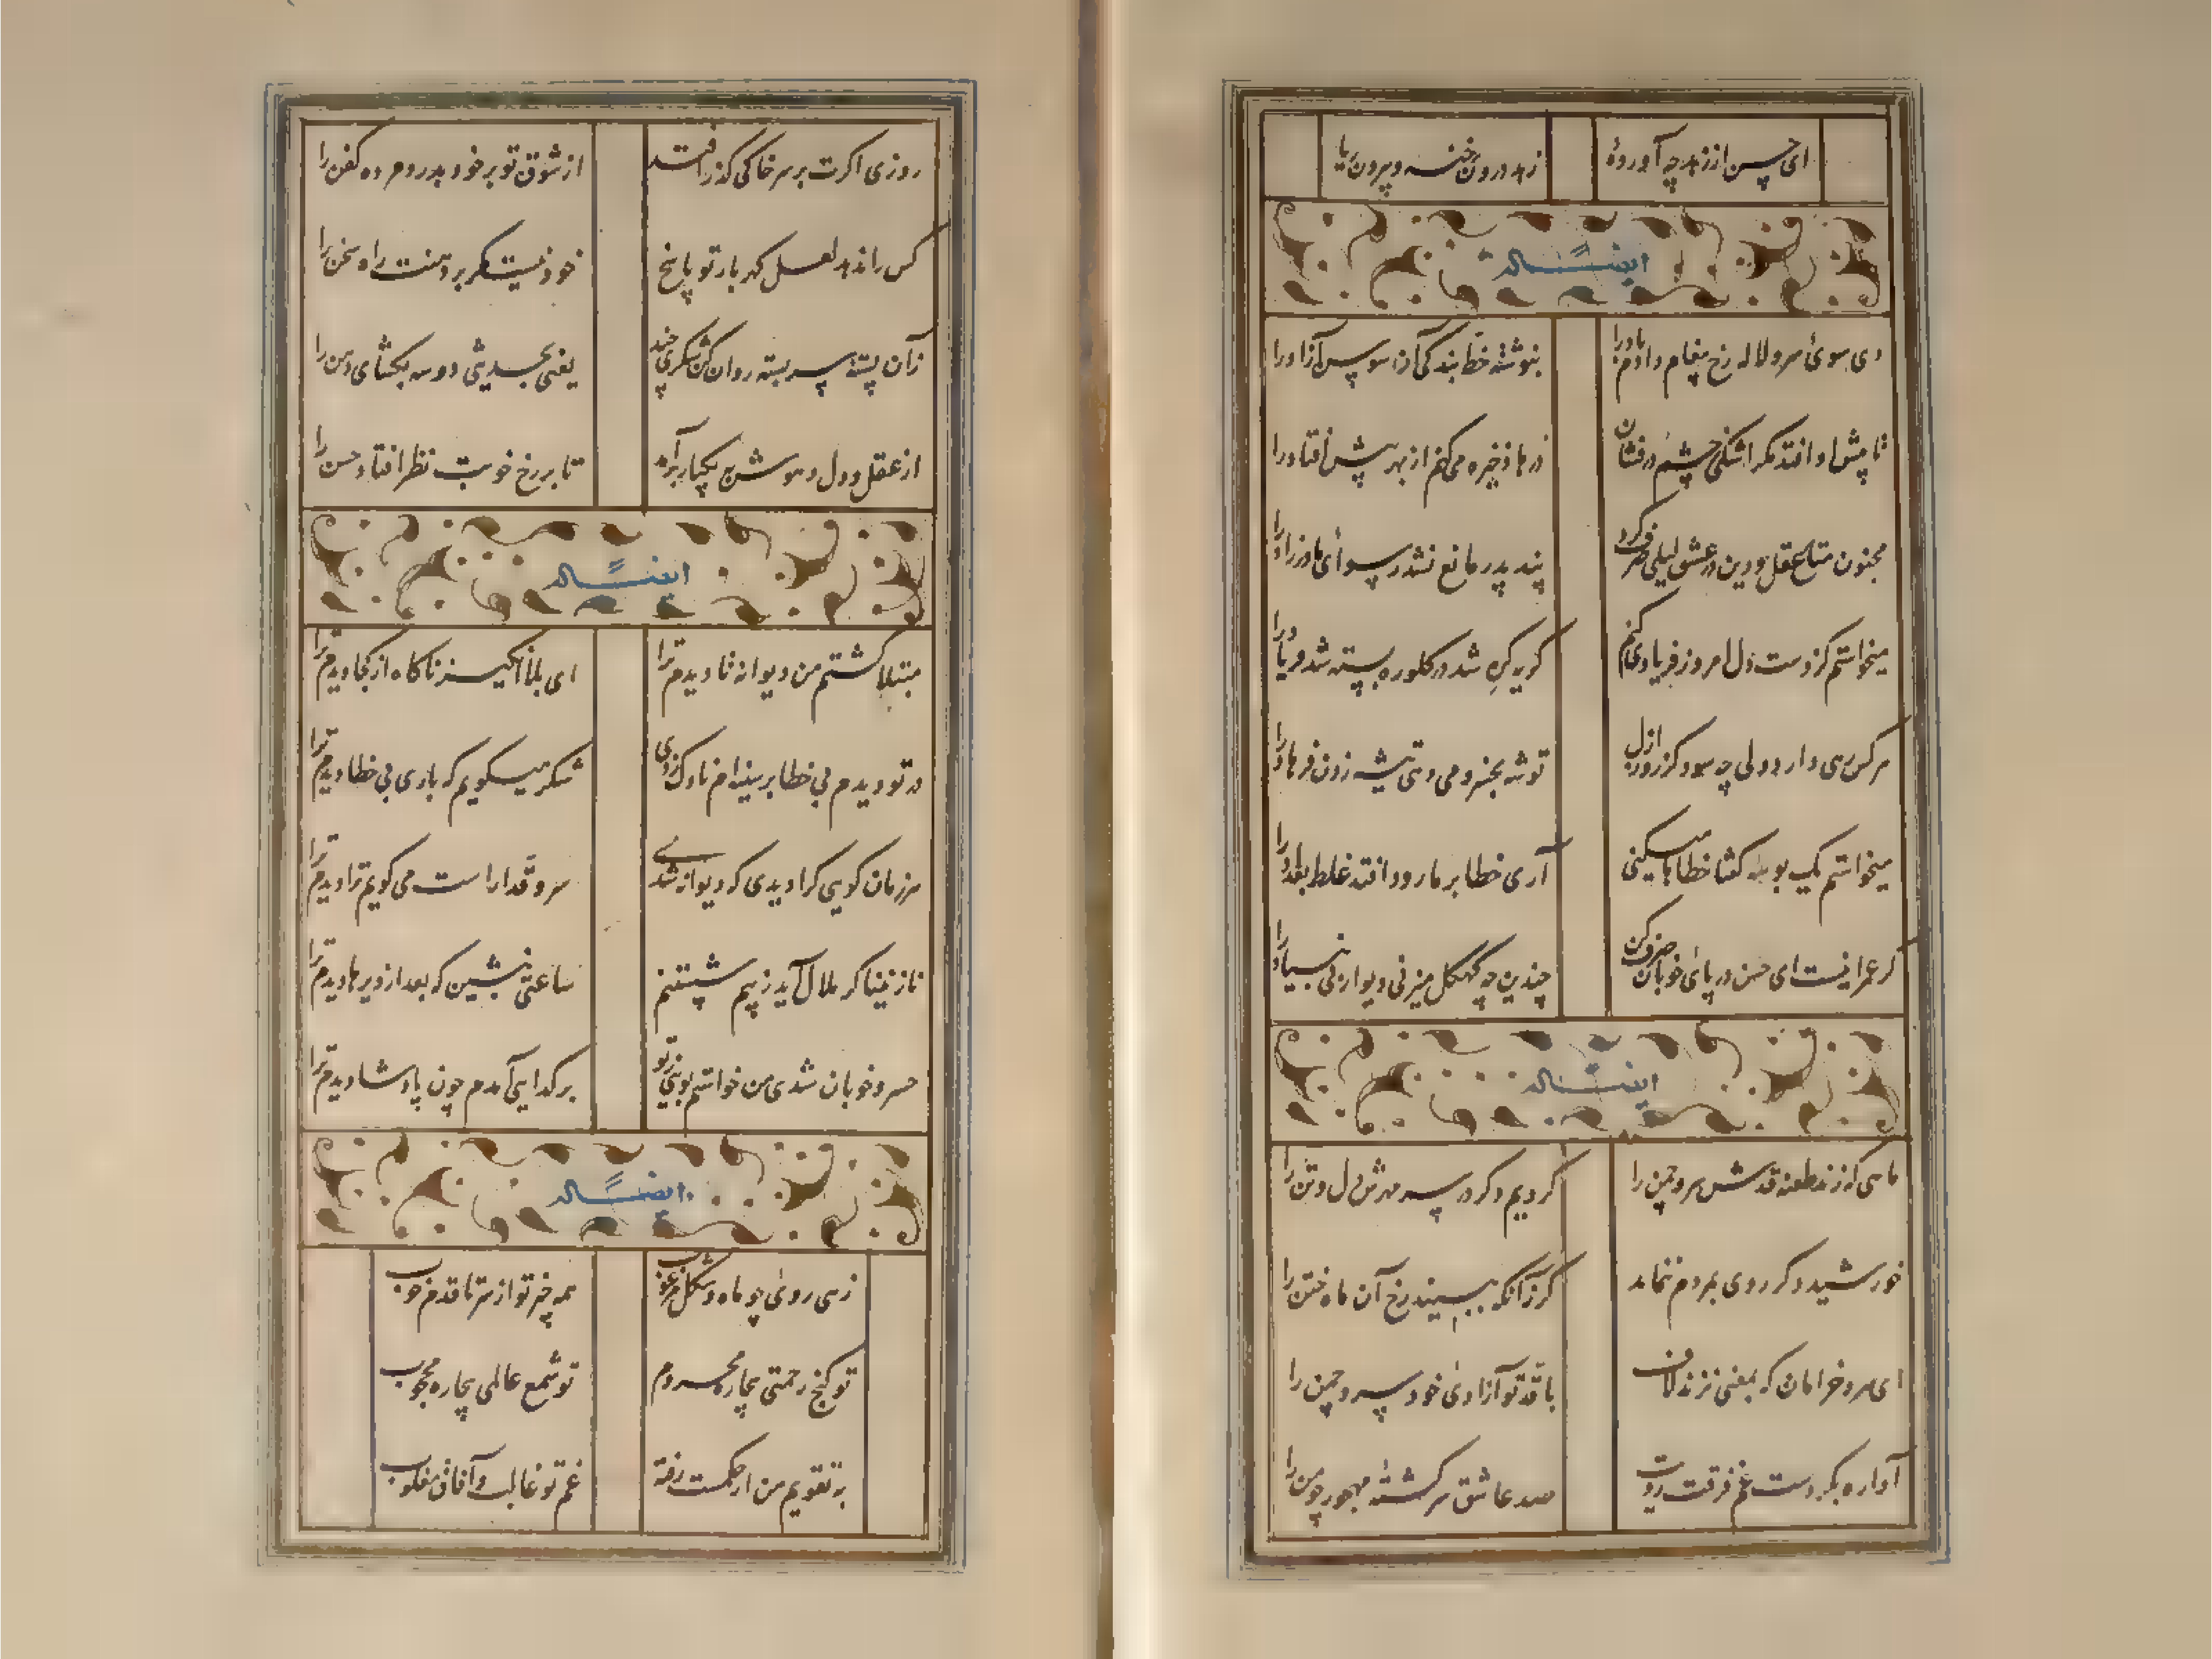 ای حسن از زهد چه آوردهٔ
زهد درون خسته و بیرون ریا
ایضاً له
دی سوی سرو لاله رخ پیغام دادم باد را
بنوشته خط بندگی آن سوسن آزاد را
تا پیش او افتد مگر اشکی ز چشم درفشان
درها ذخیره می کنم از بهر پیش افتاد را
مجنون متاع عقل و دین در عشق لیلی صرف کرد
پند پدر مانع نشد رسوای مادرزاد را
میخواستم کز دست دل امروز فریادی کنم
گریه گره شد در گلو ره بسته شد فریاد را
هر کس می دارد ولی چه سود کز روز ازل
توشه بخسرو می دهی تیشه زدن فرهاد را
میخواستم یک بوسه گفتا خطا می کنی
آری خطا بر ما رود افتد غلط بغداد را
گر عمرانیست ای حسن در پای خوبان صرف کن
چندین چه کهگل میزنی دیوار بی بنیاد را
ایضاً له
ماهی که زند طعنه قدش سرو چمن را
کردیم دگر در سر مهرش دل و تن را
خورشید دگر روی بمردم ننماید
گر زآنکه ببیند رخ آن ماه ختن را
ای سرو خرامان که بمعنی نزند لاف
با قد تو آزادی خود سرو چمن را
آواره بکردست غم فرقت رویت
صد عاشق سرگشتهٔ مهجور چو من را
روزی اگرت بر سر خاکی گذر افتد
از شوق تو بر خود بدرد مرده کفن را
کس را ندهد لعل گهربار تو پاسخ
خود نیست مگر بر دهنت راه سخن را
زآن پستهٔ سربسته روان کن شکری چند
یعنی بحدیثی دو سه بگشای دهن را
از عقل و دل و هوش به یکبار برآمد
تا بر رخ خوبت نظر افتاد حسن را
ایضاً له
مبتلا گشتم من دیوانه تا دیدم ترا
ای بلا انگیز ناگاه از کجا دیدم ترا
در تو دیدم بی خطا بر سینه ام ناوک زدی
شکر میگویم که باری بی خطا دیدم ترا
هر زمان گویی کرا دیدی که دیوانه شدی
سرو قدا راست می گویم ترا دیدم ترا
نازنینا گر ملال آید ز پیم شستنم
ساعتی بنشین که بعد از دیرها دیدم ترا
خسرو خوبان شدی من خواستم بوسی ز تو
بر گدایی آمدم چون پادشا دیدم ترا
ایضاً له
زهی روی چو ماه و شکل مرغوب
همه چیز تو از سر تا قدم خوب
تو گنج رحمتی بیچاره محروم
تو شمع عالمی بیچاره محجوب
به تقویم من از حکمت رفته
غم تو غالبست و آفاق مغلوب